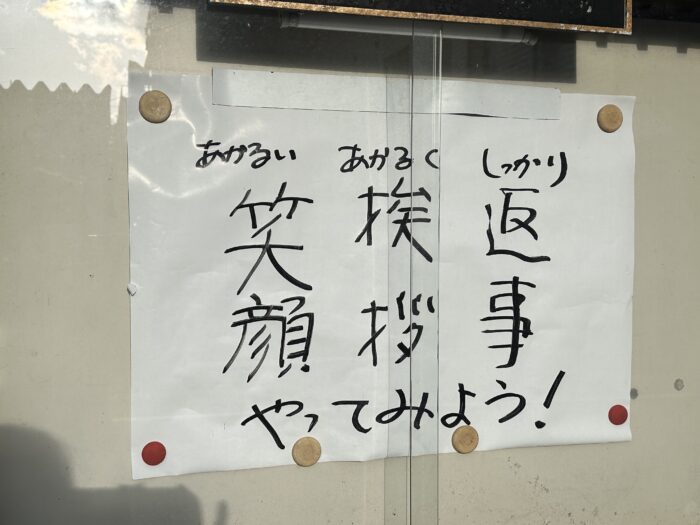 しっかり
返事
あかるく
挨拶
あかるい
笑顔
やってみよう!